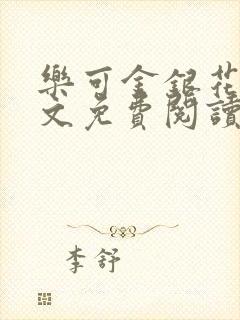 樂可金銀花
文免費閱讀
李舒